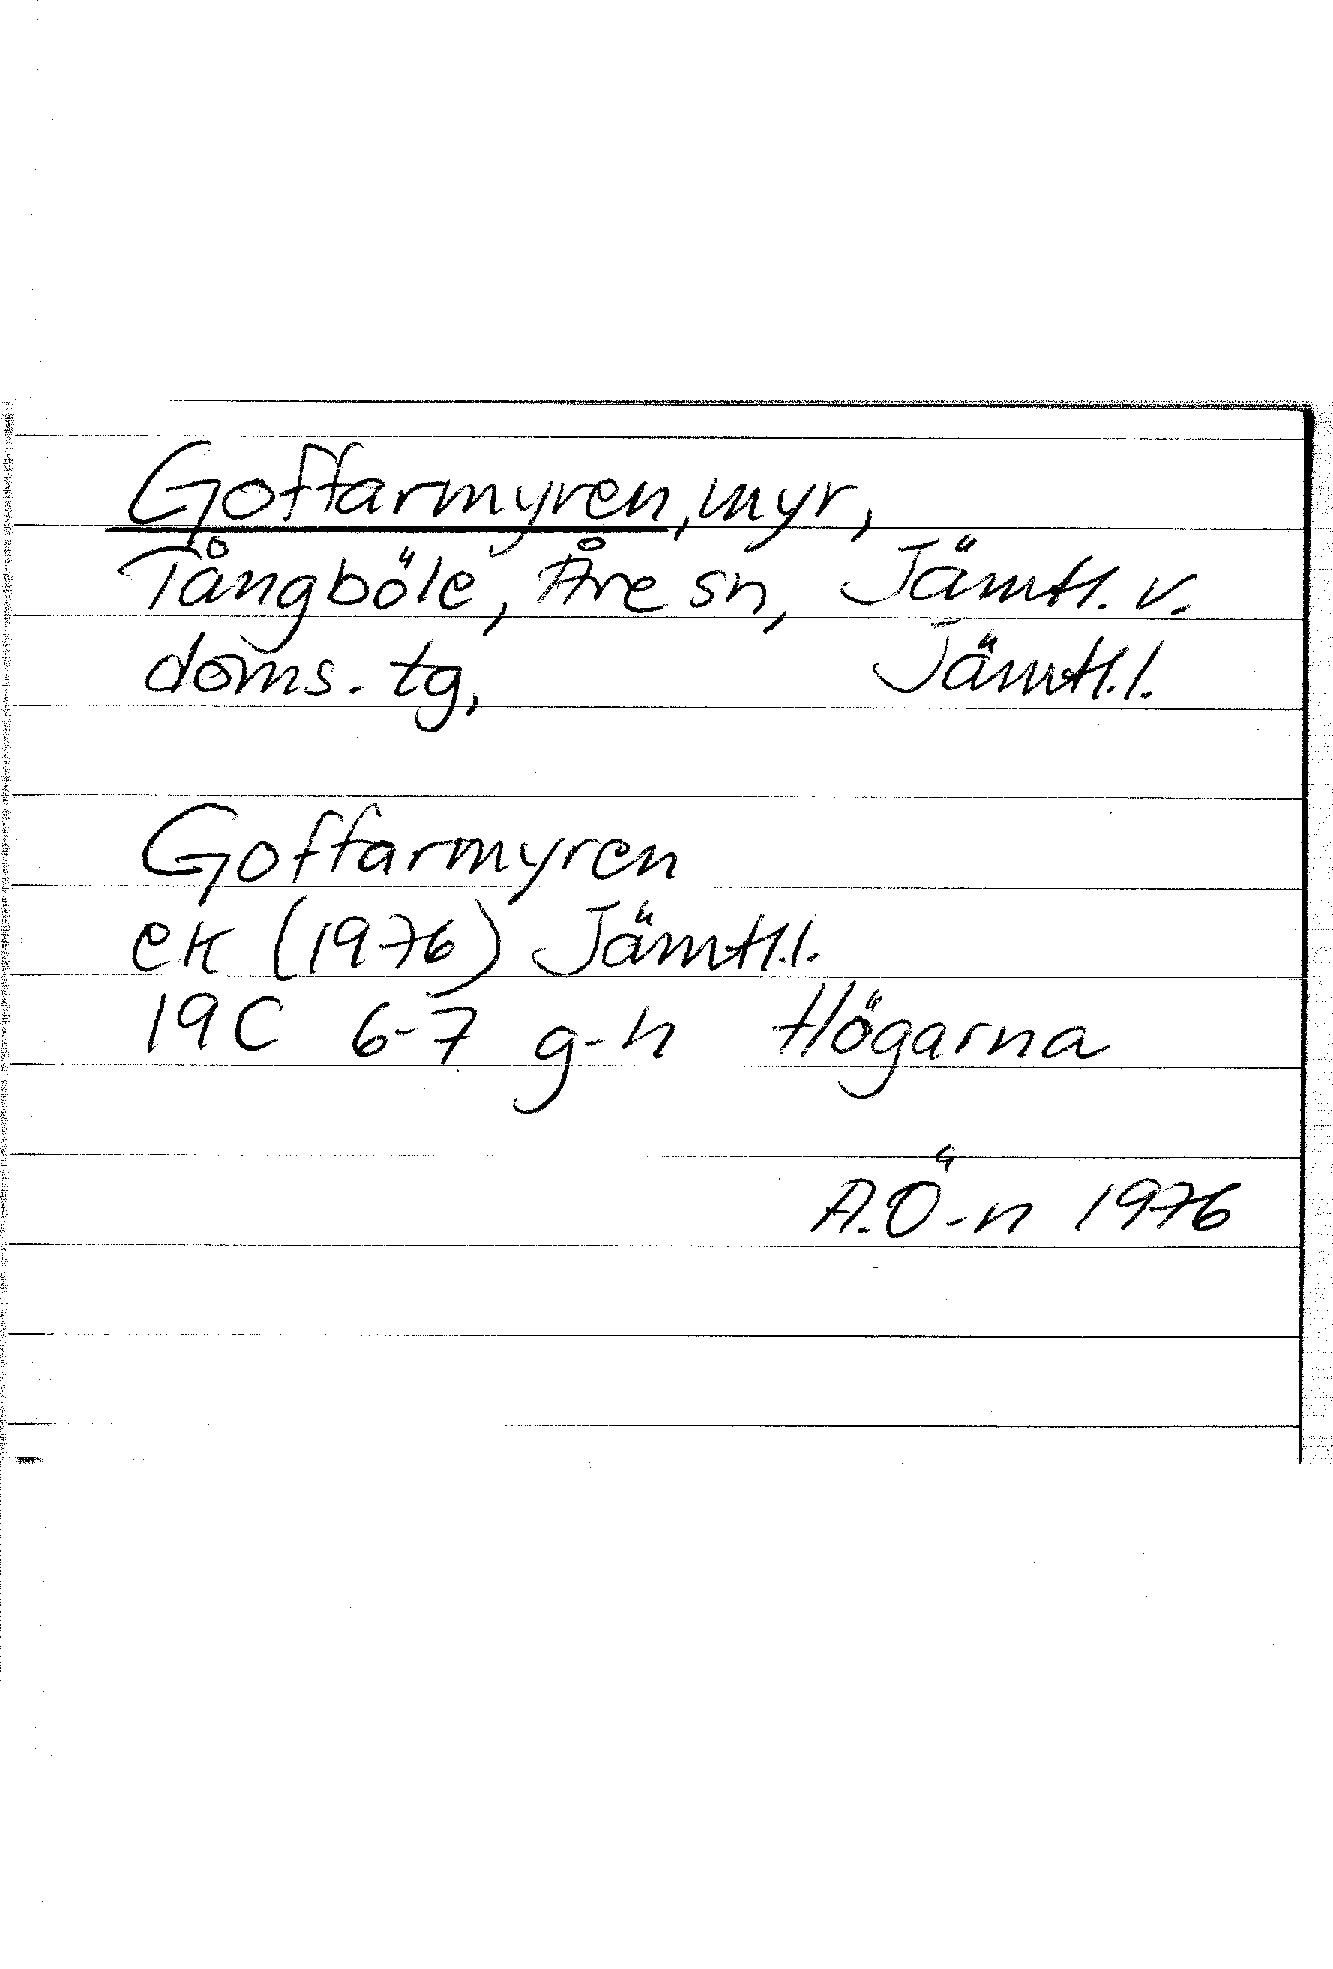 Goffarmyren, myr,
Tångböle, Åre sn, Jämtl. v.
doms. tg, Jämtl.l.
Goffarmyren
ek (1976) Jämtl.l.
19C 6-7 g-h Högarna
A.Ö-n 1976